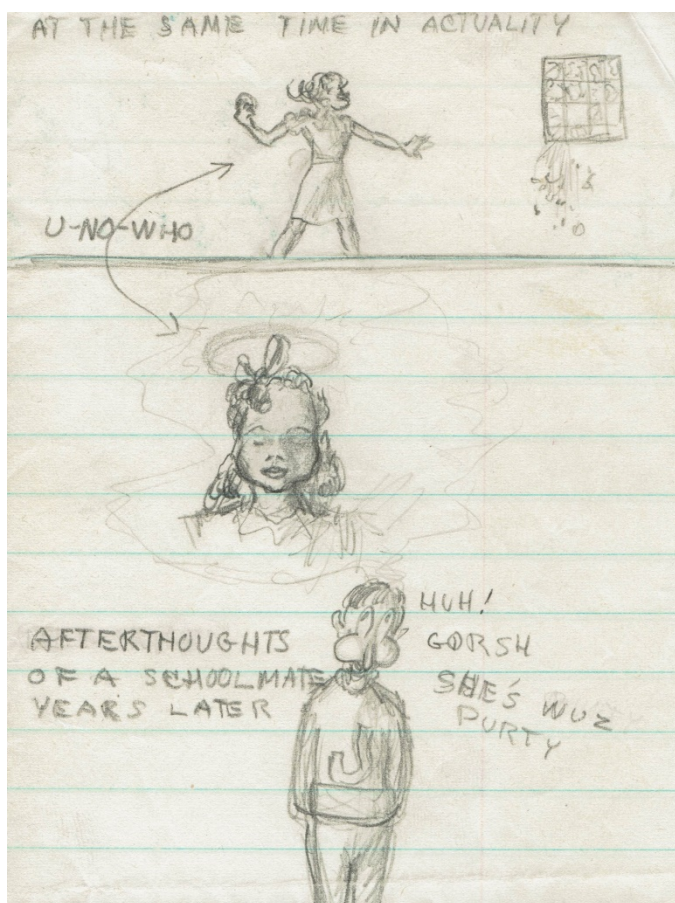 AT THE SAME TIME IN ACTUALITY
U-NO-WHO
AFTERTHOUGHTS
OF A SCHOOLMATE
YEARS LATER
HUH!
GORSH
SHE'S WUZ
PURTY
J